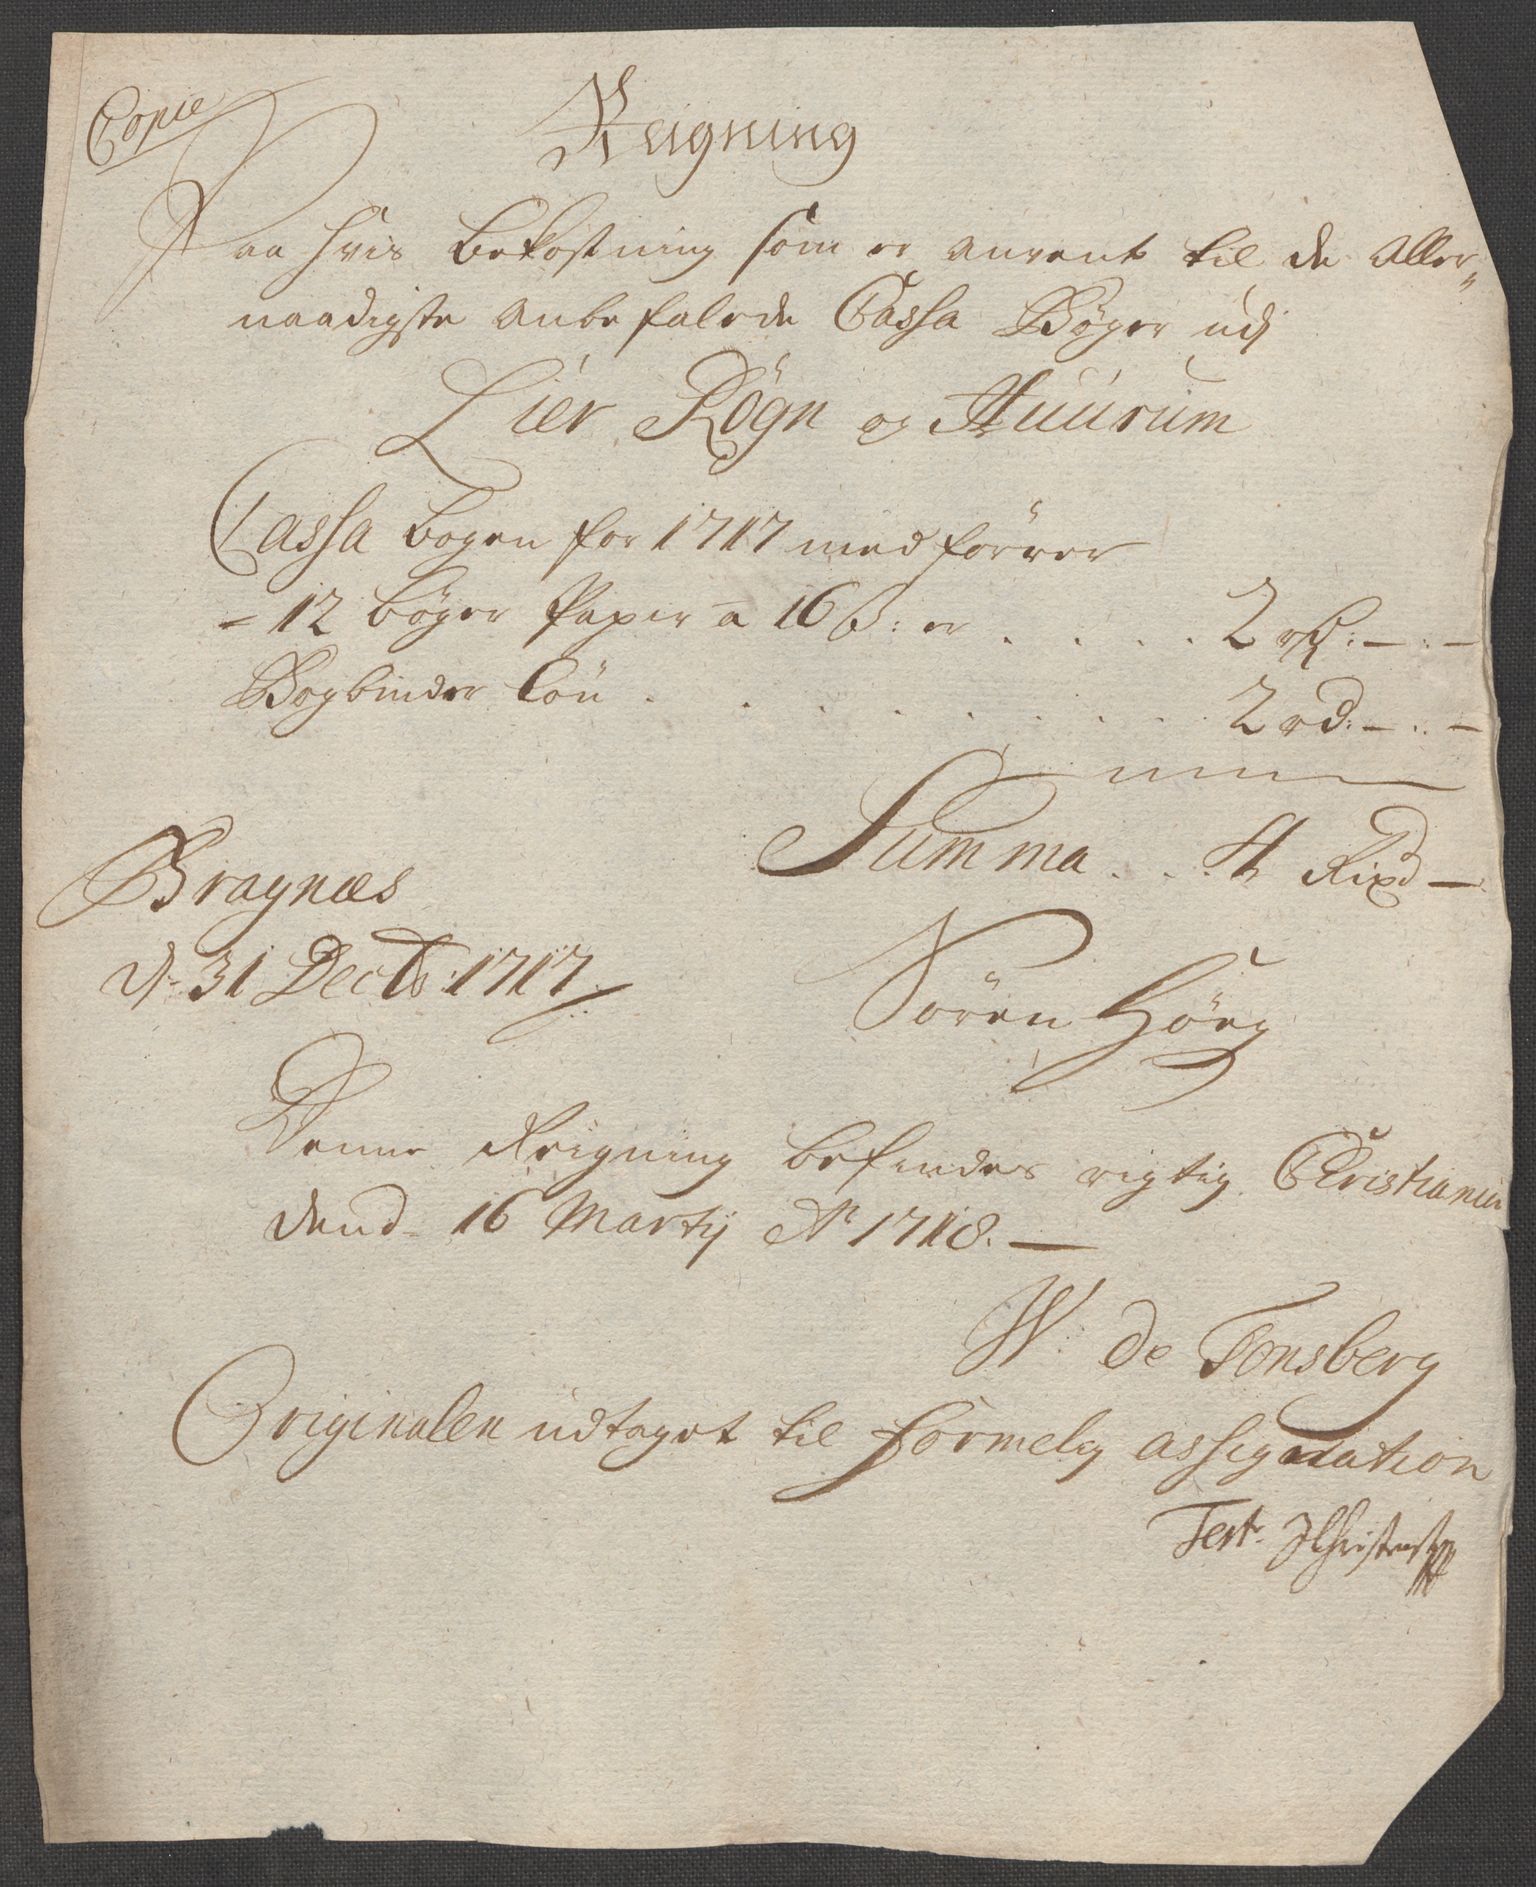 Copie
Reigning
Paa hvis bekostning som er anvent til de Aller-
naadigste anbefalede Cassa Bøger udj
Lier Røgn og Huurum
Cassa bogen for 1717 medførrer
- 12 bøger Papir a 16 ß: er . . . . 2 rd: - : -
Bogbinder løn . . . . . . . . 2 rd: - : -
Summa . . . 4 Rixd -
Bragnæs
d. 31 Decb: 1717
Søren Høeg
Denne Reigning befindes rigtig Christiania
dend 16 Martij Ao 1718. -
W: de Tonsberg
Originalen udtaget til formelig assignation
Test.